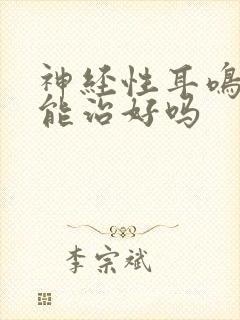 神经性耳鸣
能治好吗
李宗斌